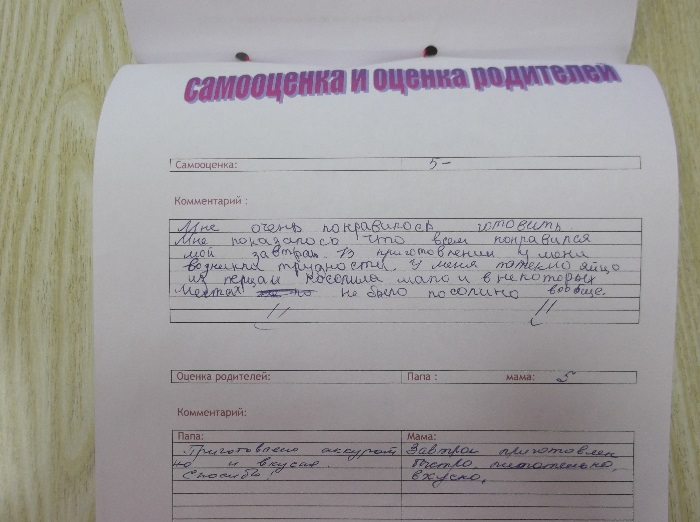 самооценка и оценка родителей
Самооценка: 5-
Комментарий :
Мне очень понравилось готовить.
Мне показалось что всем понравился
мой завтрак. В приготовлении у меня
возникли трудности. У меня яйцо
из посолила мало и в некоторых
местах не было посолино вообще.
Оценка родителей: Папа : мама: 5
Комментарий:
Папа: Мама:
Приготовлено аккурат Завтрак приготовлен
но и вкусно. быстро, питательно,
Спасибо вкусно.